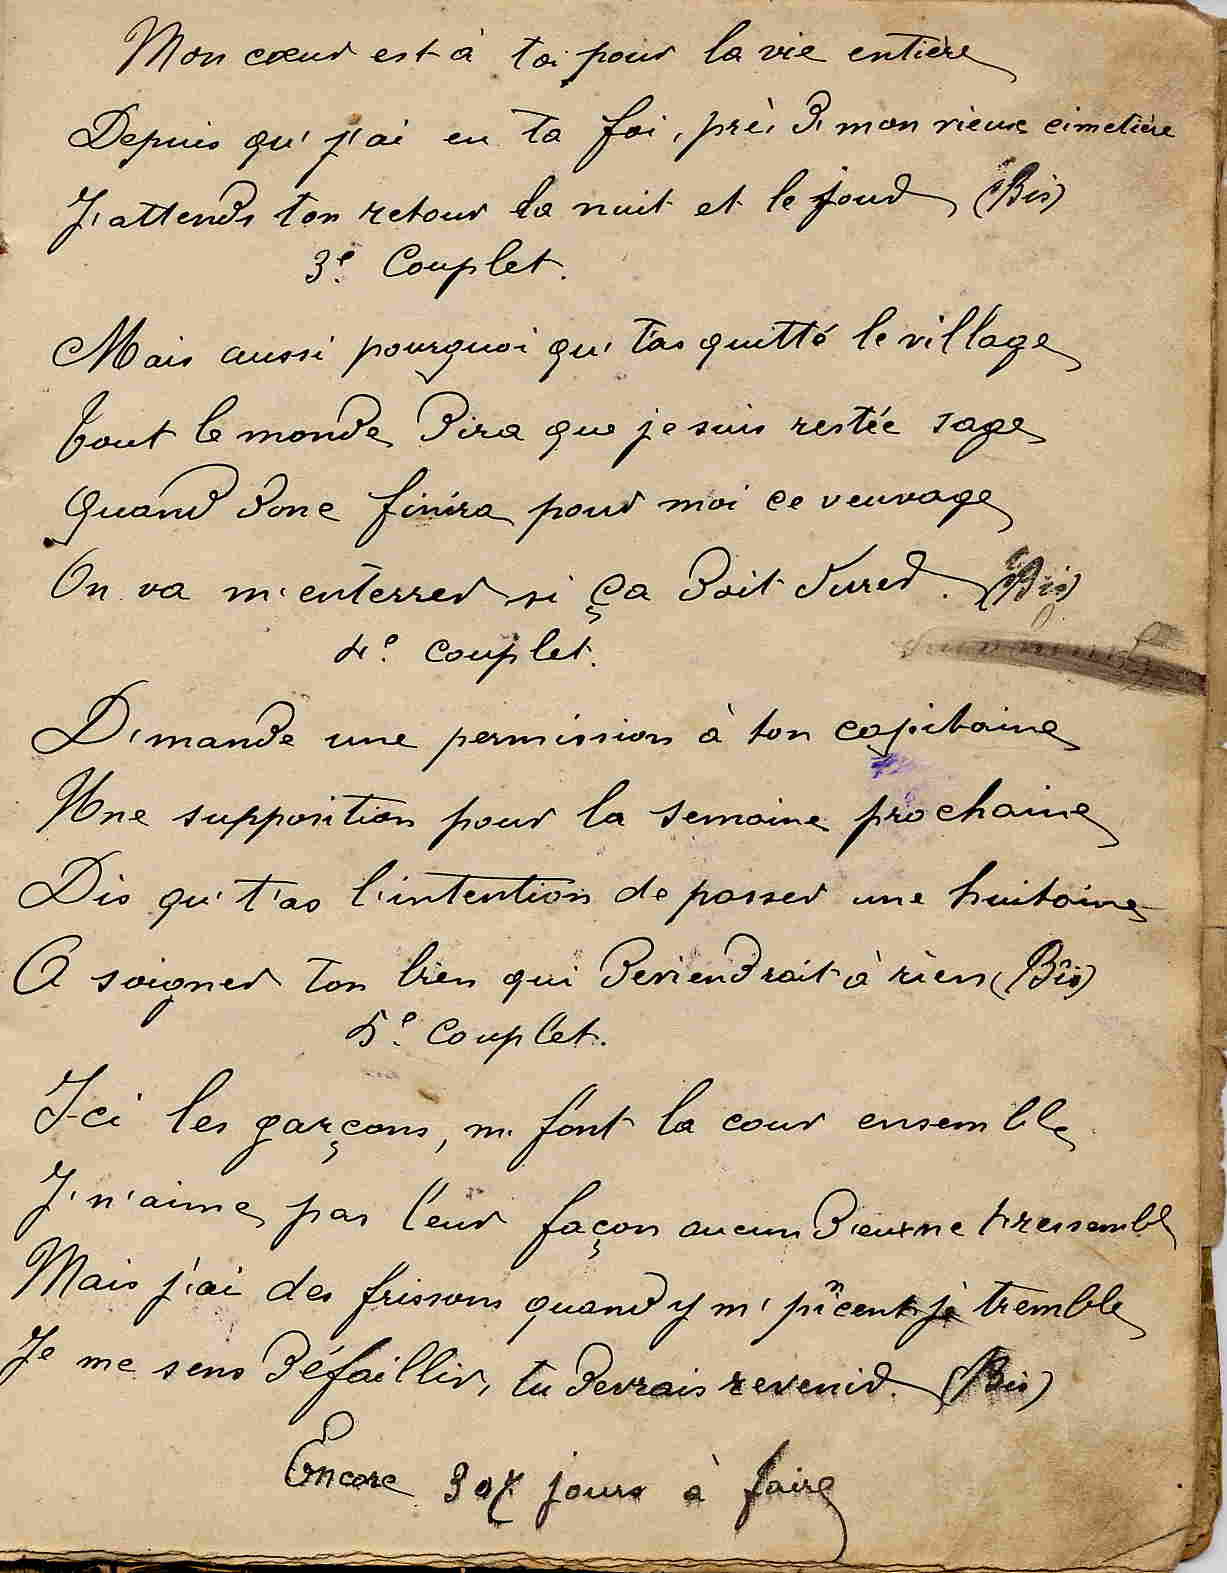 Mon cœur est à toi pour la vie entière
Depuis qu' j'ai eu ta foi, près d' mon vieux cimetière
J'attends ton retour la nuit et le jour (Bis)
3e Couplet.
Mais aussi pourquoi qu' t'as quitté le village
Tout le monde dira que je suis restée sage
Quand donc finira pour moi ce veuvage
On va m'enterrer si ça doit durer. (Bis)
4e couplet.
D'mande une permission à ton capitaine
Une supposition pour la semaine prochaine
Dis qu' t'as l'intention de passer une huitaine
A soigner ton bien qui deviendrait à rien (Bis)
5e Couplet.
Ici les garçons, m' font la cour ensemble
J' n'aime pas leur façon aucun d'eux ne t' ressembl
Mais j'ai des frissons quand y m' pincent je tremble
Je me sens défaillir, tu devrais revenir. (Bis)
Encore 307 jours à faire